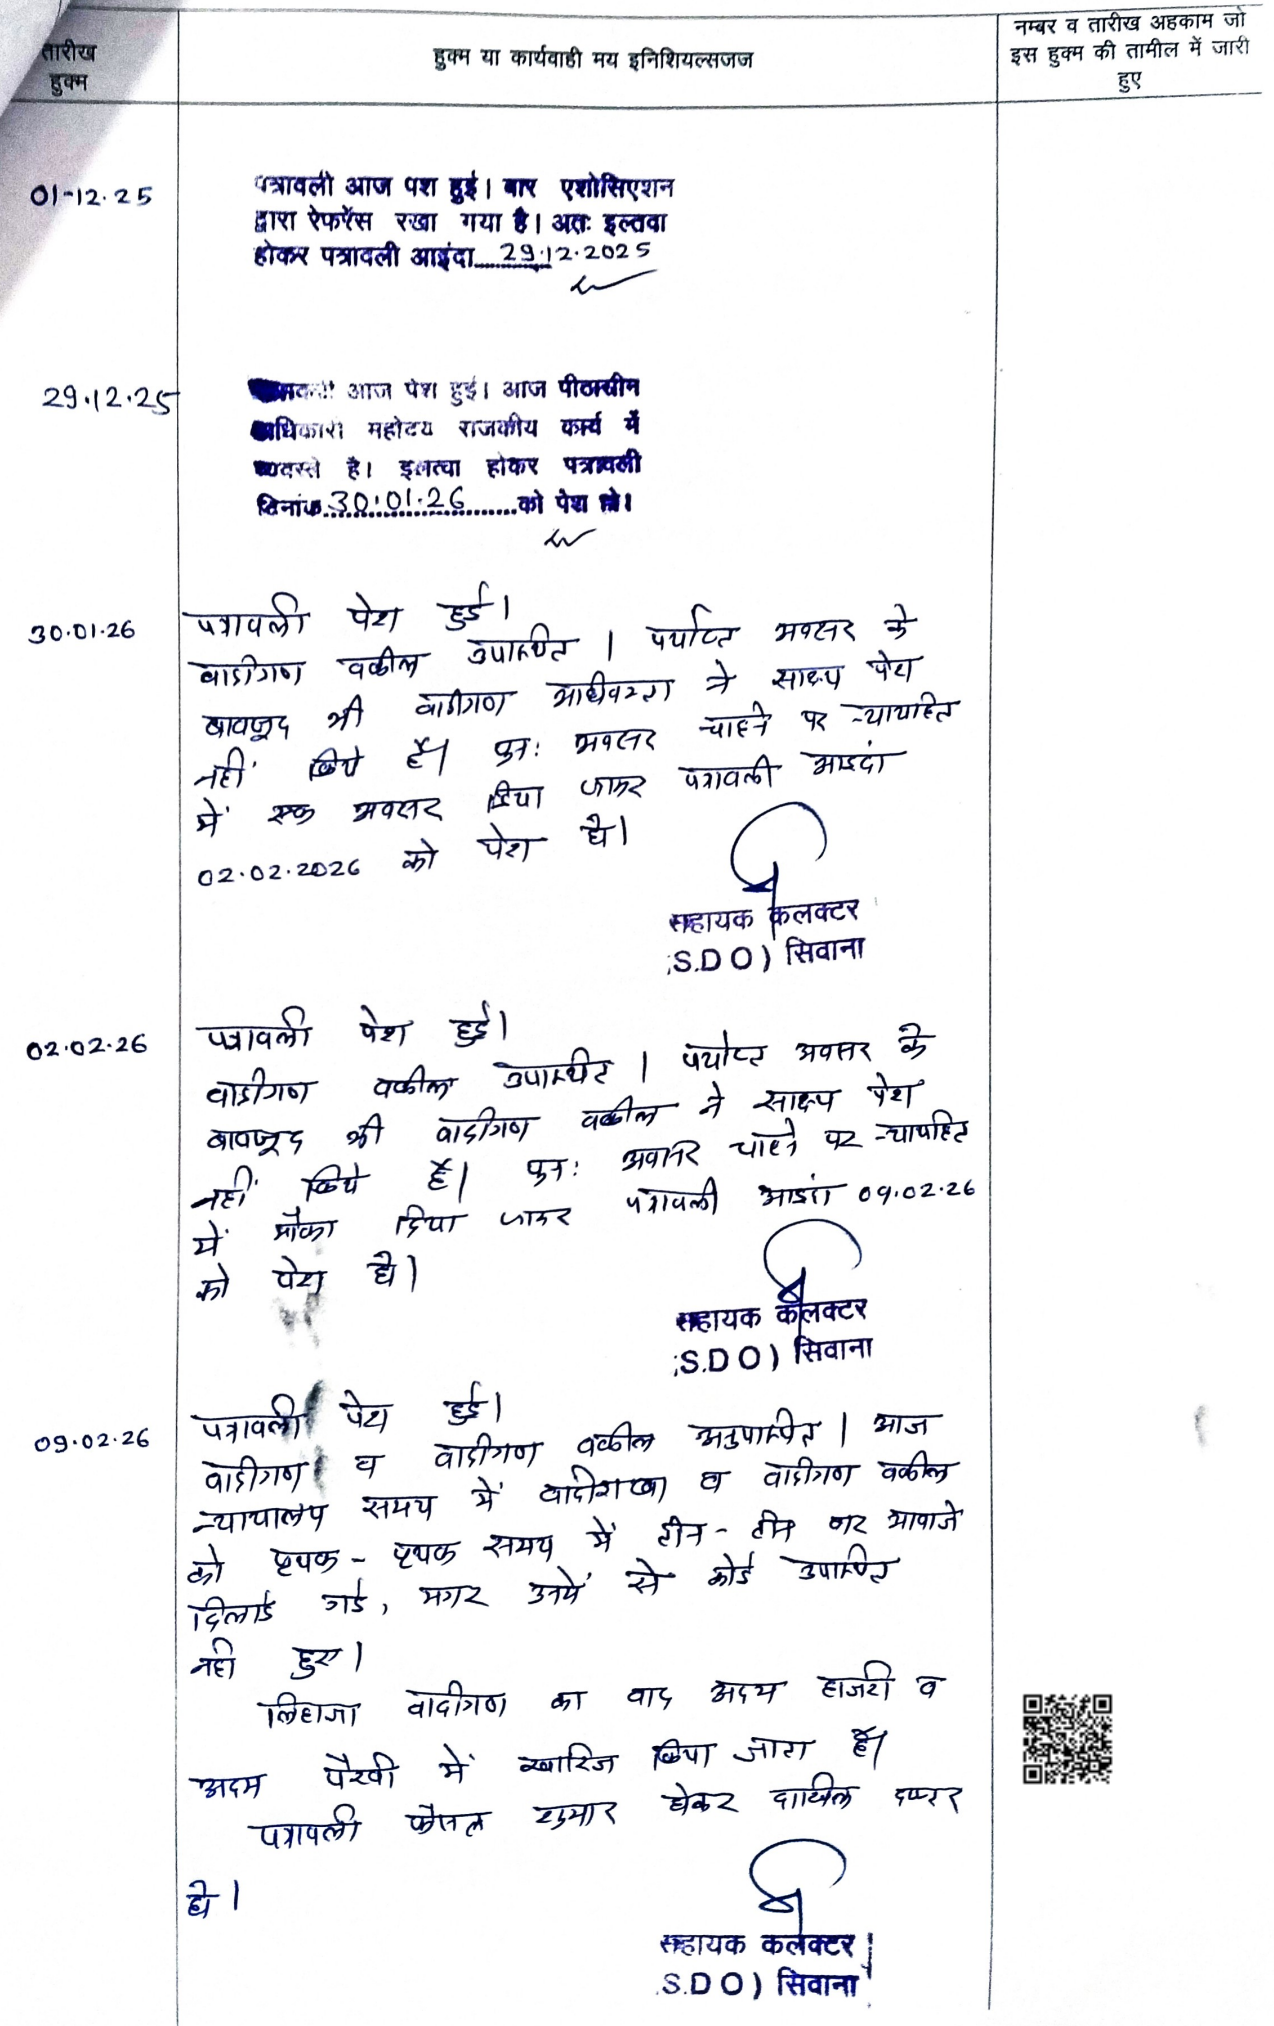 तारीख
हुक्म
हुक्म या कार्यवाही मय इनिशियल्सजज
नम्बर व तारीख अहकाम जो
इस हुक्म की तामील में जारी
हुए
01-12.25
पत्रावली आज पेश हुई। बार एशोसिएशन
द्वारा ऐफरेंस रखा गया है। अतः इल्तवा
होकर पत्रावली आइंदा......29.12.2025
29.12.25
आज पेश हुई। आज पीठासीन
अधिकारी महोदय राजकीय कार्य में
व्यस्त है। इलत्वा होकर पत्रावली
दिनांक 30.01.26 को पेश हो।
30.01.26
पत्रावली पेश हुई।
वादीगण वकील उपस्थित। पर्याप्त अवसर के
बावजूद भी वादीगण अधिवक्ता ने साक्ष्य पेश
नहीं किये हैं। पुनः अवसर चाहने पर न्यायहित
में एक अवसर दिया जाकर पत्रावली आइंदा
02.02.2026 को पेश हो।
सहायक कलक्टर
(S.D O) सिवाना
02.02.26
पत्रावली पेश हुई।
वादीगण वकील उपस्थित। पर्याप्त अवसर के
बावजूद भी वादीगण वकील ने साक्ष्य पेश
नहीं किये हैं। पुनः अवसर चाहने पर न्यायहित
में मौका दिया जाकर पत्रावली आइंदा 09.02.26
को पेश हो।
सहायक कलक्टर
(S.D O) सिवाना
09.02.26
पत्रावली पेश हुई।
वादीगण व वादीगण वकील अनुपस्थित। आज
न्यायालय समय में वादीगण व वादीगण वकील
को पृथक-पृथक समय में तीन-तीन बार आवाजे
दिलाई गई, मगर उनमें से कोई उपस्थित
नही हुए।
लिहाजा वादीगण का वाद अदम हाजरी व
अदम पैरवी में खारिज किया जाता है।
पत्रावली फैसल शुमार होकर दाखिल दफ्तर
हो।
सहायक कलक्टर
(S.D O) सिवाना